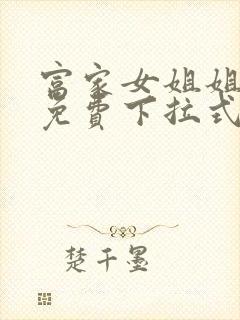 富家女姐姐
免費下拉式
楚千墨